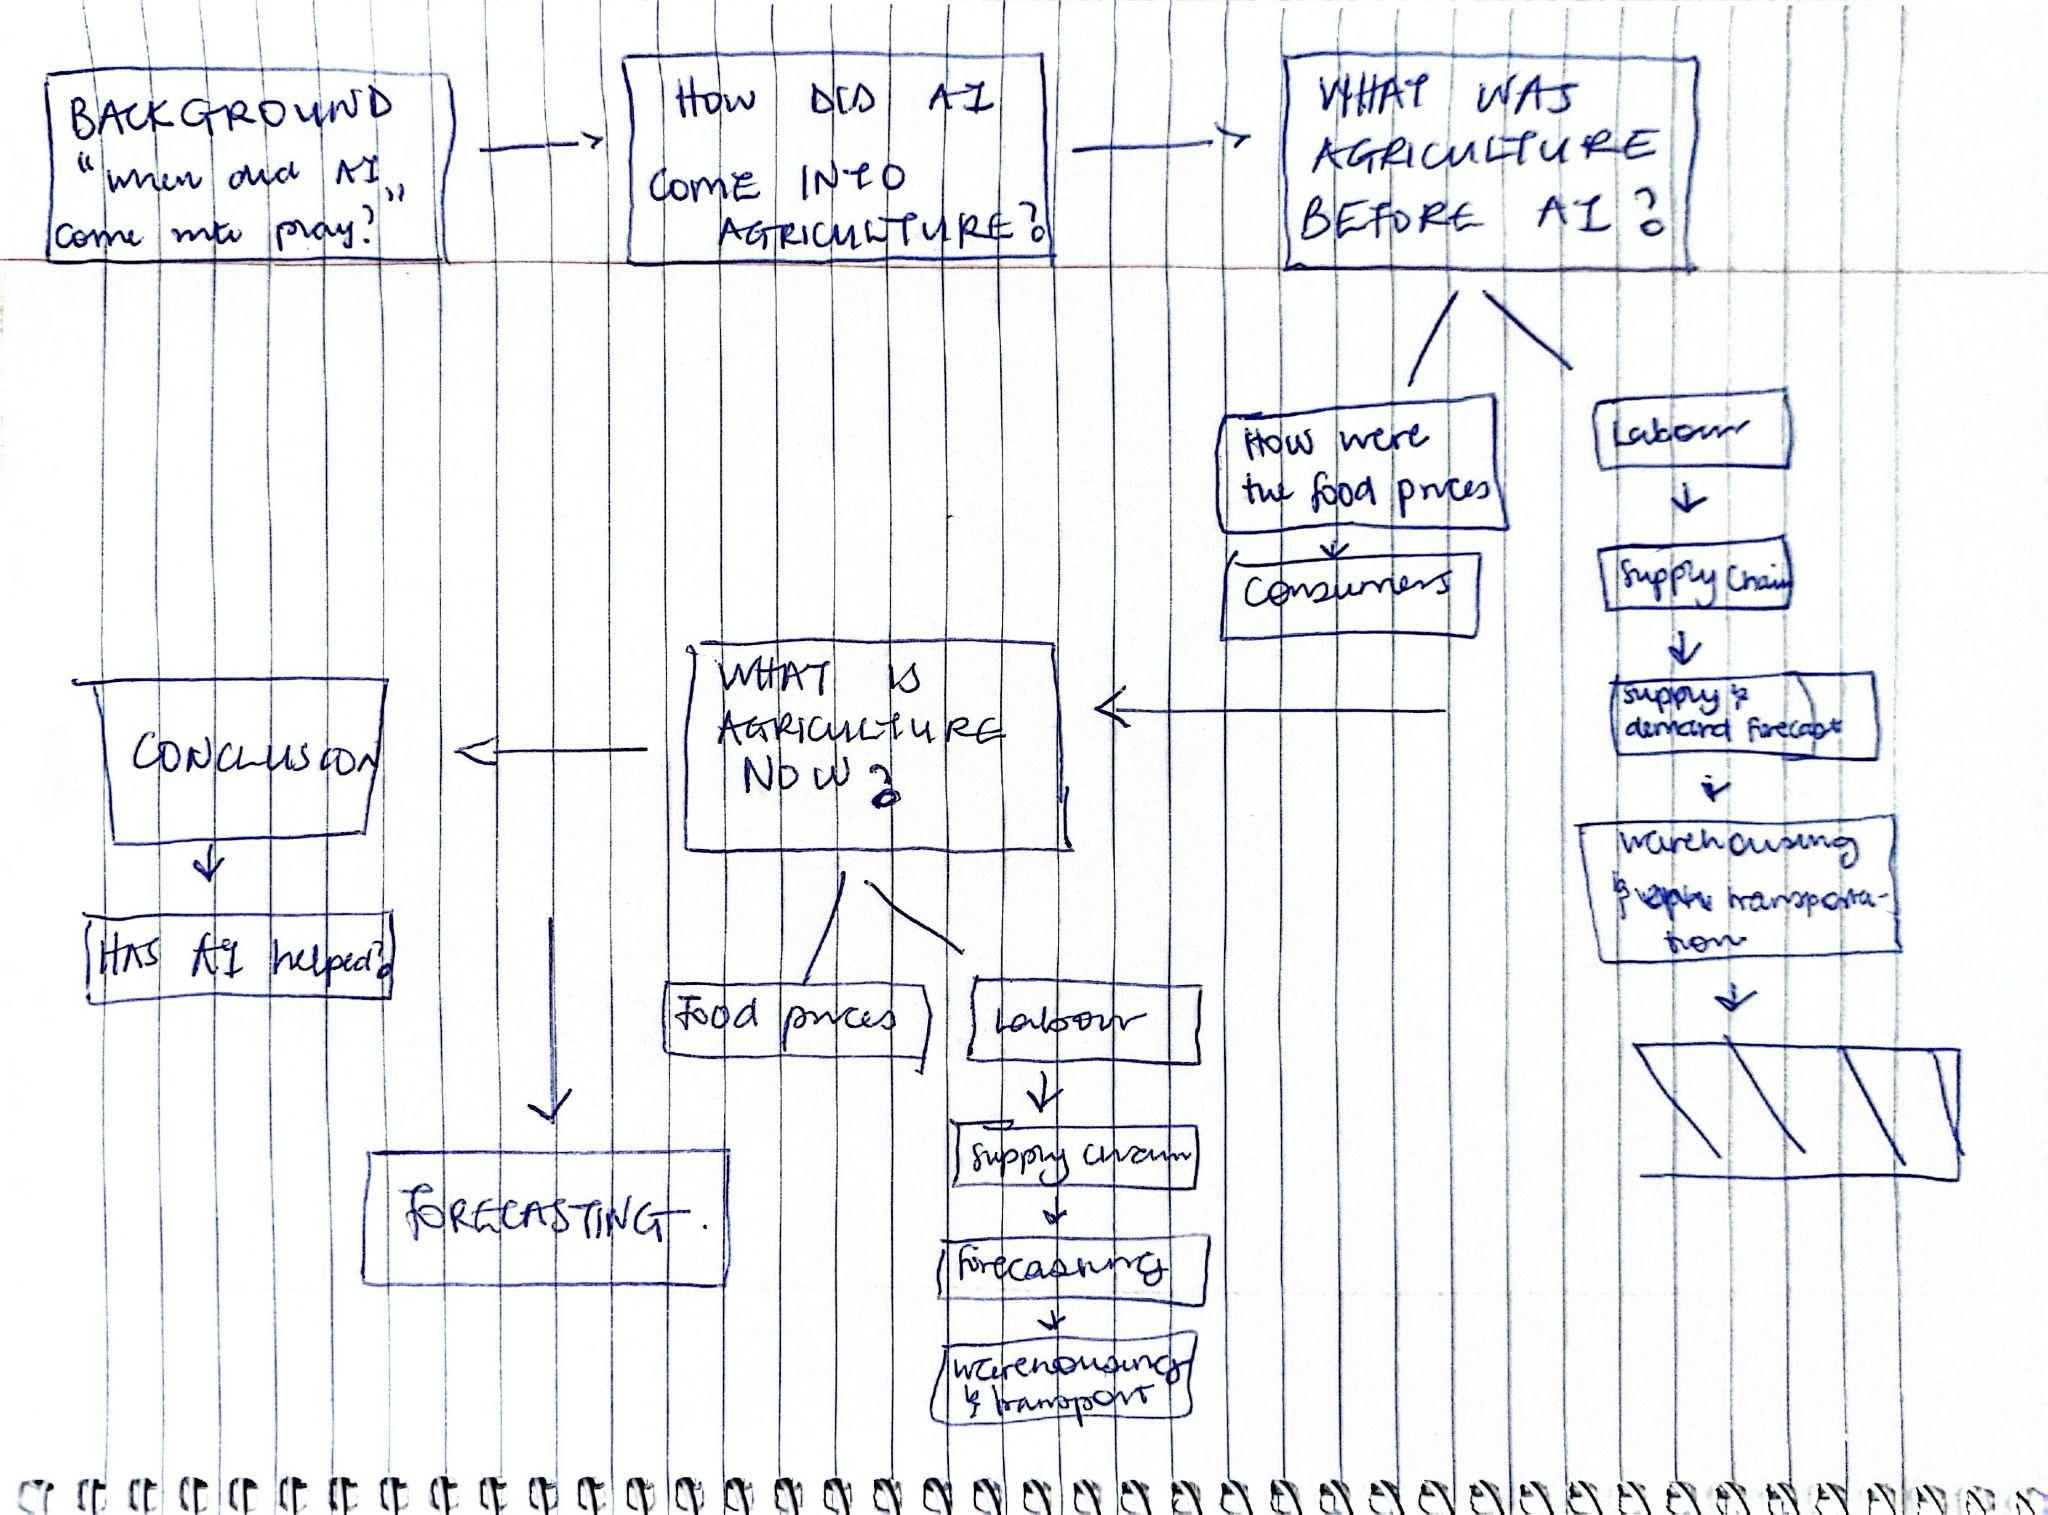 BACKGROUND
"when did AI
come into play?"
HOW DID AI
COME INTO
AGRICULTURE?
WHAT WAS
AGRICULTURE
BEFORE AI?
How were
the food prices
Consumers
Labour
Supply Chain
Supply &
demand Forecast
Warehousing
& transporta-
tion
WHAT IS
AGRICULTURE
NOW?
Food prices
Labour
Supply Chain
Forecasting
Warehousing
& transport
CONCLUSION
HAS AI helped?
FORECASTING.